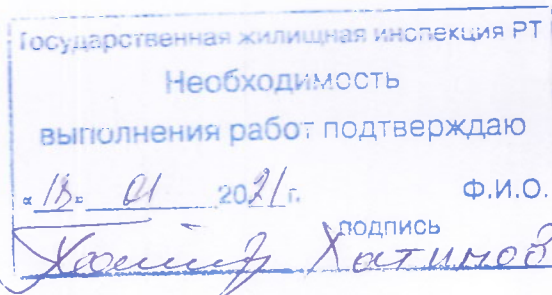 Государственная жилищная инспекция РТ
Необходимость
выполнения работ подтверждаю
«13» 01 2021 г. Ф.И.О.
подпись
Хатипов